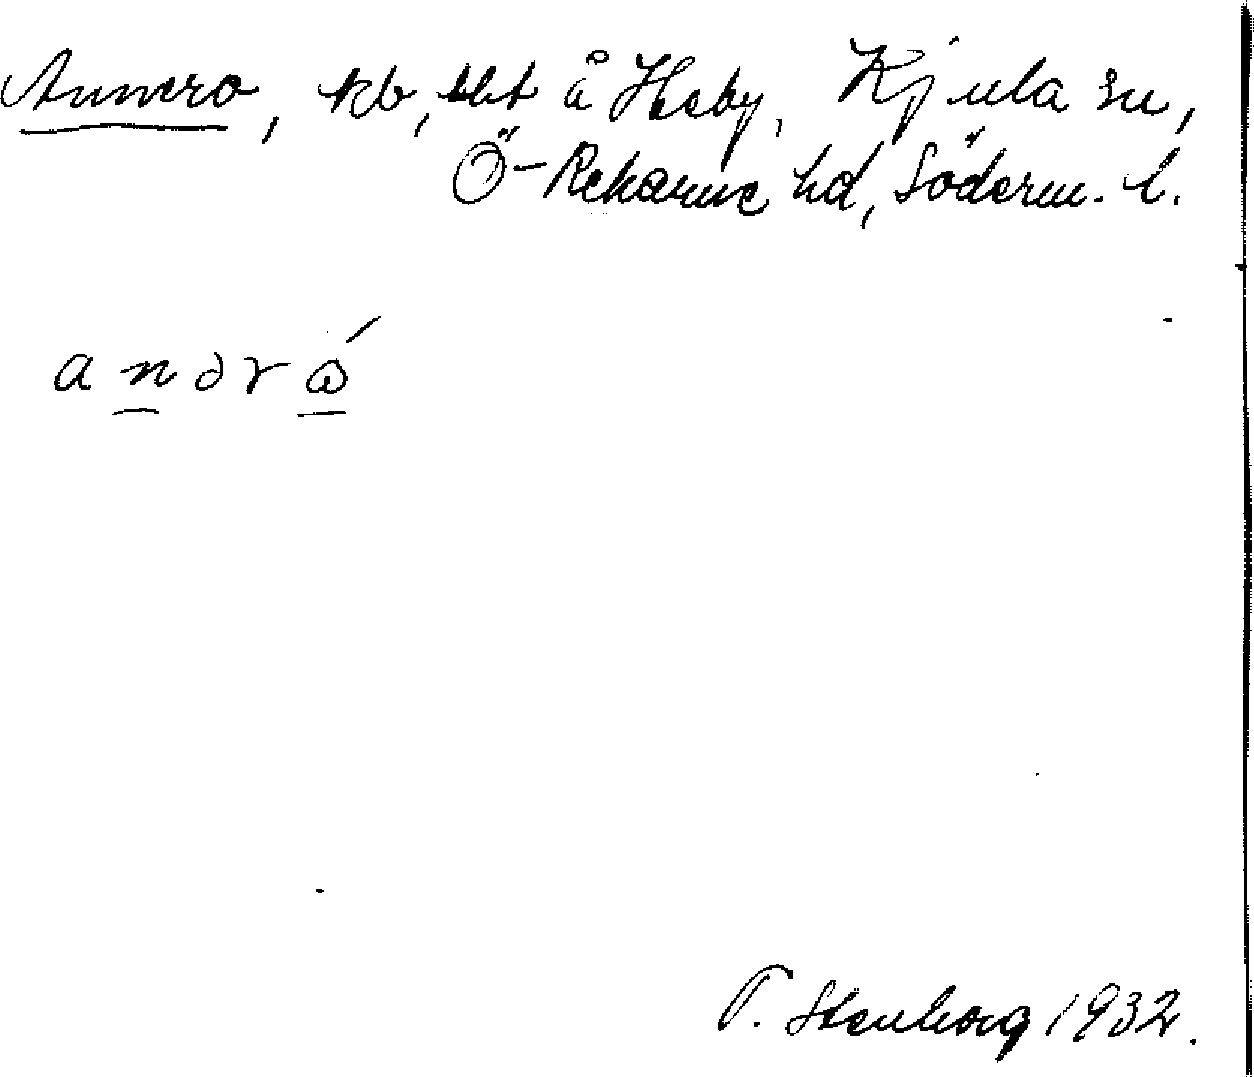 Annero, kb, tbt å Heby, Kjula sn,
Ö-Rekarne hd, Söderm. l.
a n ə r ώ
T. Stenborg 1932.